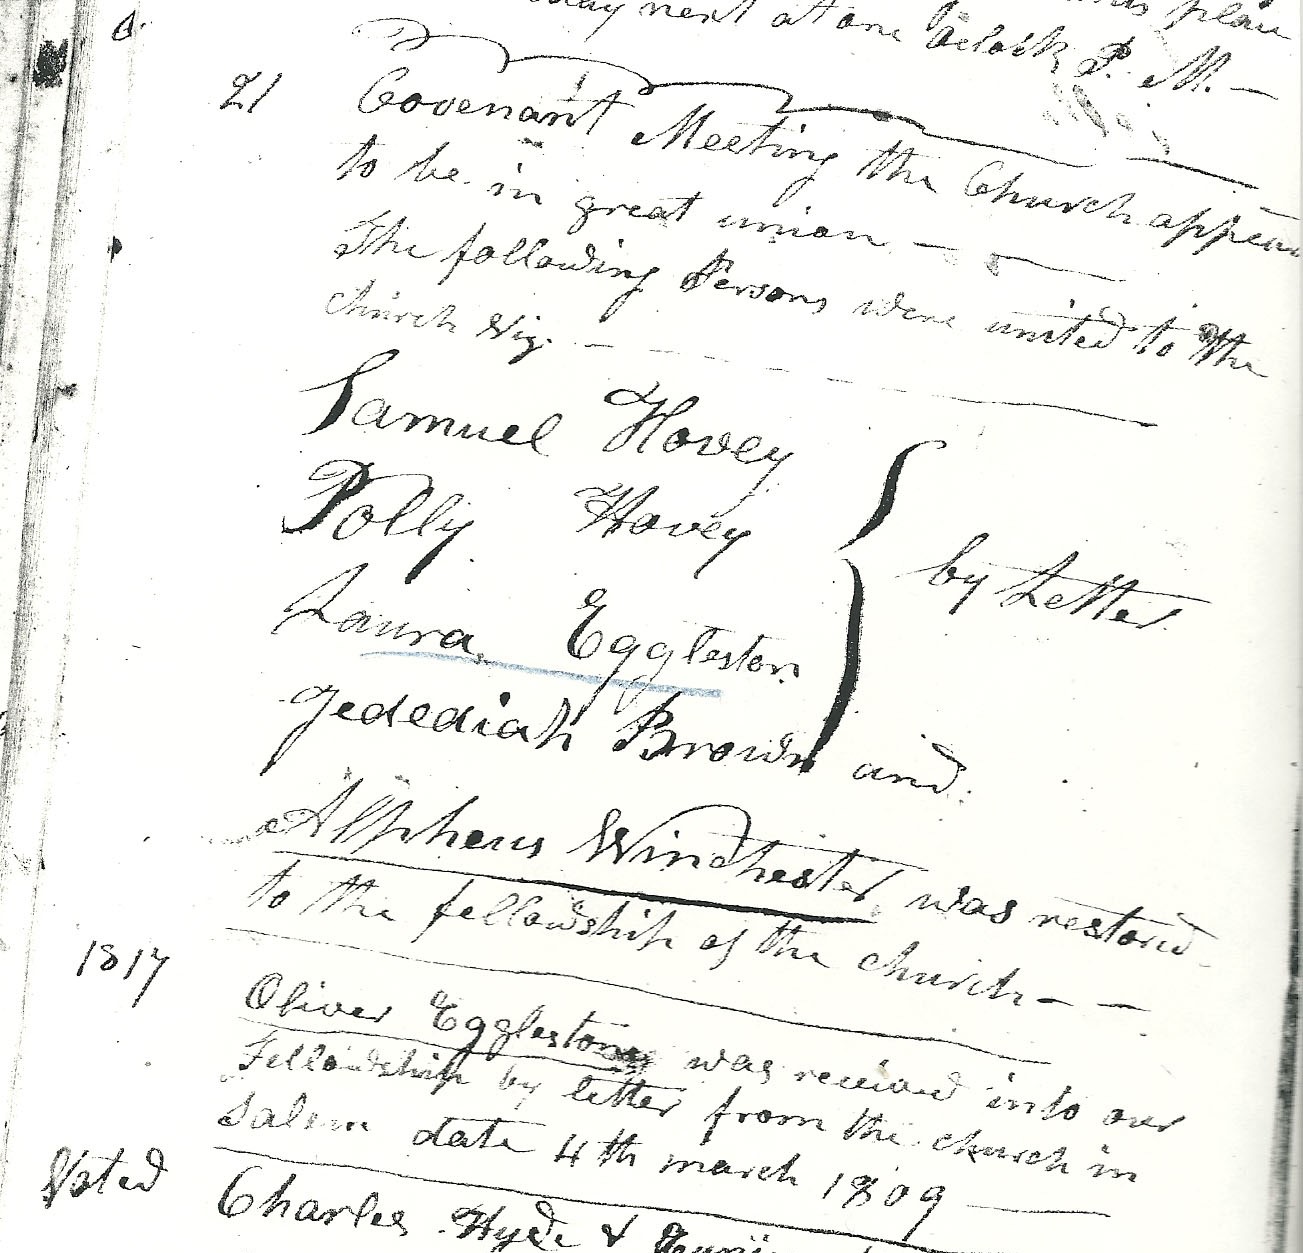 next at one oclock P. M. —
21 Covenant Meeting the Church appear
to be in great union —
The following Persons were united to the
church Viz. —
Samuel Hovey
Polly Hovey
by Letter
Laura Eggleston
Jedediah Brown and
Allpheus Winchester was restord
to the fellowship of the church — —
1817 Oliver Egglestone was received into our
Fellowship by letter from the church in
Salem date 4th march 1809 —
Voted Charles Hyde &